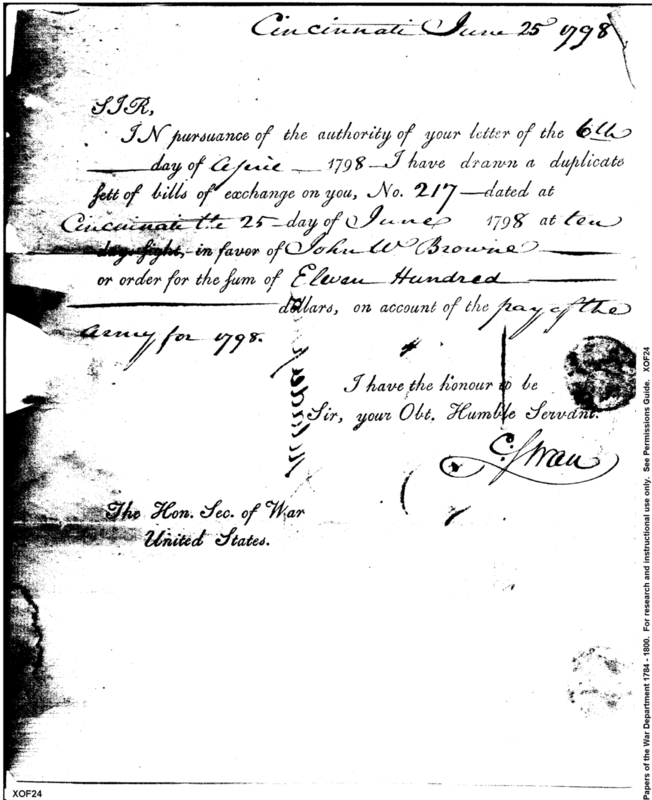 Cincinnati June 25 1798
SIR,
IN pursuance of the authority of your letter of the 6th
day of Aprie 1798 - I have drawn a duplicate
sett of bills of exchange on you, No. 217 - dated at
Cincinnati the 25 - day of June 1798 at ten
days sight, - in favor of John W Browne
or order for the sum of Eleven Hundred
dollars, on account of the pay of the
Army for 1798.
I have the honour to be
Sir, your Obt. Humble Servant.
C. Swan
The Hon. Sec. of War
United States.
XOF24
Papers of the War Department 1784 - 1800. For research and instructional use only. See Permissions Guide. XOF24